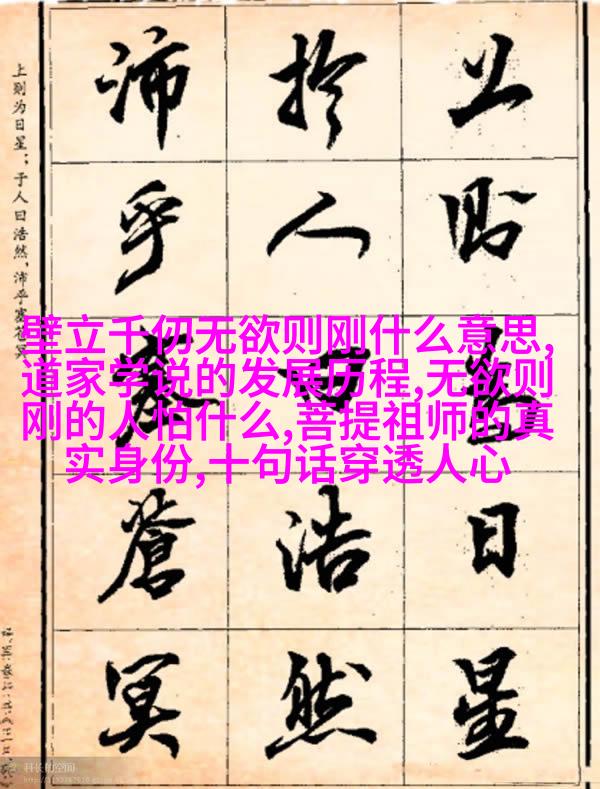 上則為日星
於人曰浩然
沛乎塞蒼冥
上则为日星；于人曰浩然，沛乎塞苍冥
壁立千仞无欲则刚什么意思,
道家学说的发展历程,无欲则
刚的人怕什么,菩提祖师的真
实身份,十句话穿透人心
科长的空间